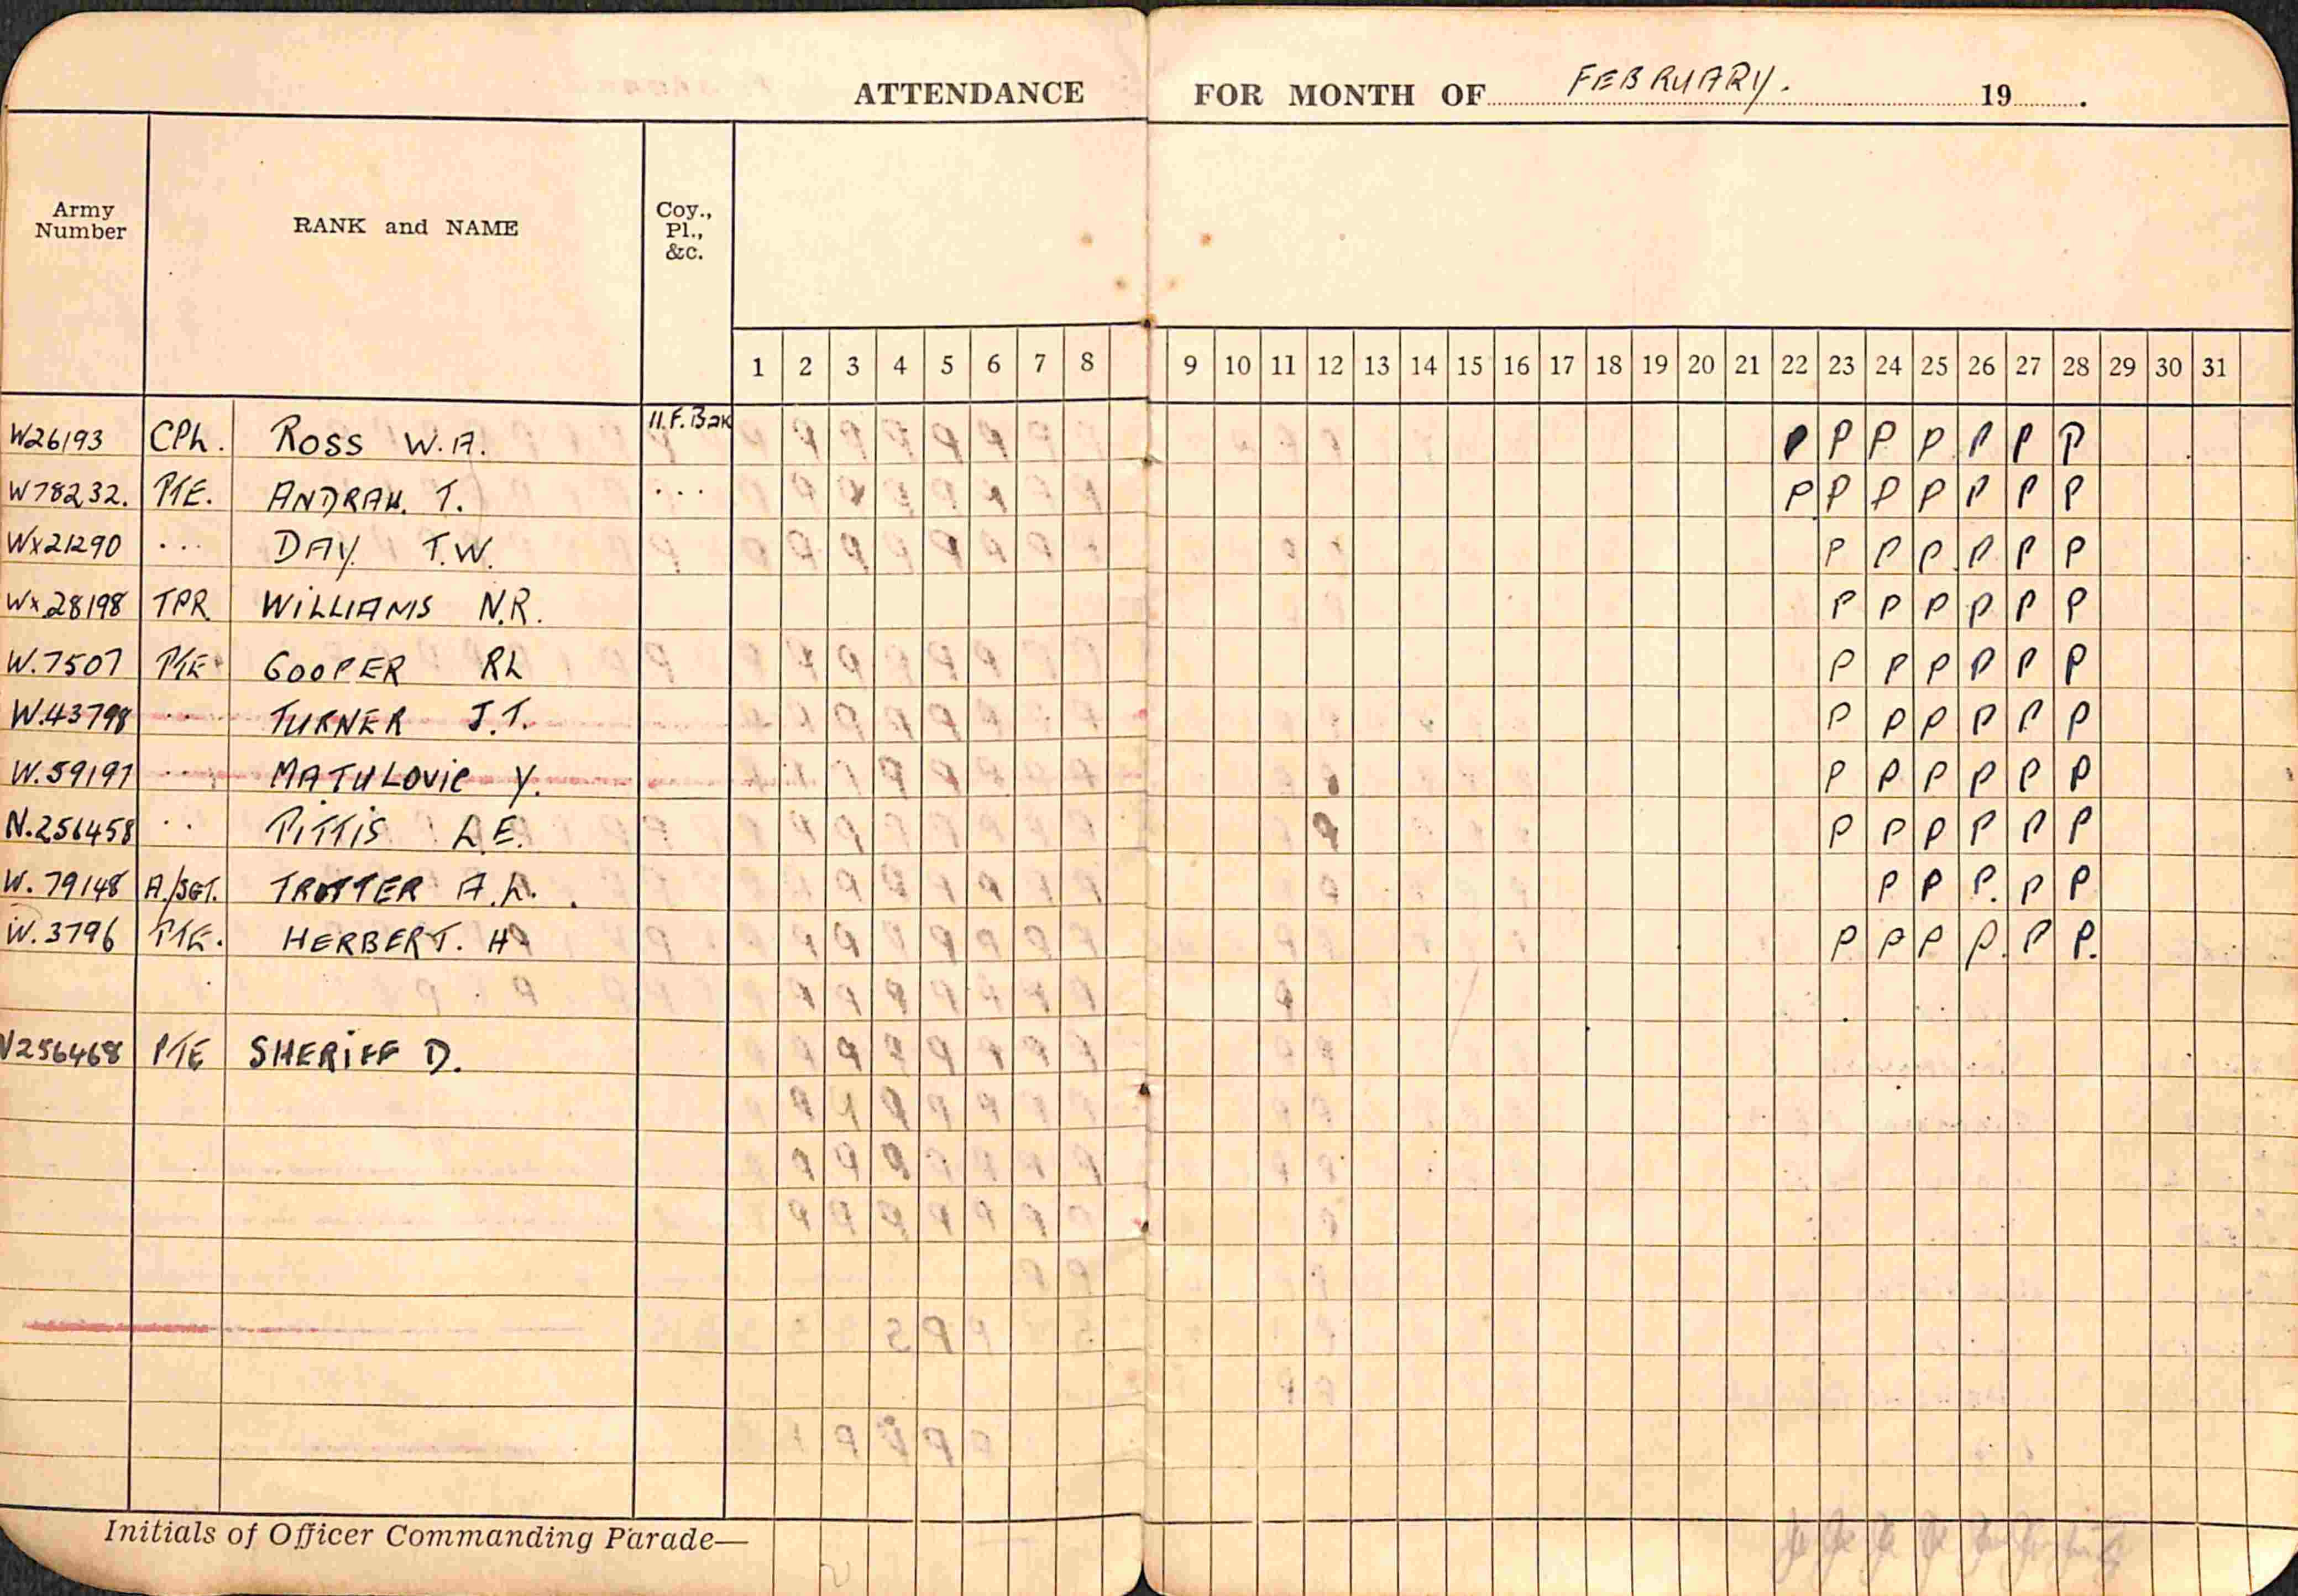 ATTENDANCE FOR MONTH OF FEBRUARY. 19 .
Army Number RANK and NAME Coy., Pl., &c.
1 2 3 4 5 6 7 8 9 10 11 12 13 14 15 16 17 18 19 20 21 22 23 24 25 26 27 28 29 30 31
W26193 CPL. ROSS W.A. P P P P P P P
W78232. PTE. ... P P P P P P P
WX21290 ... DAY. T.W. P P P P P P
WX28198 TPR. WILLIAMS N.R. P P P P P P
W.7507 PTE. COOPER RL P P P P P P
W.43798 .. TURNER J.T. P P P P P P
W.59197 ... MATULOVIC Y. P P P P P P
N.256458 .. PITTIS L.E. P P P P P P
W.79148 A./SGT. TROTTER A.L. P P P. P P
W.3796 PTE. HERBERT. H P P P P. P P.
256468 PTE SHERIFF D.
Initials of Officer Commanding Parade—